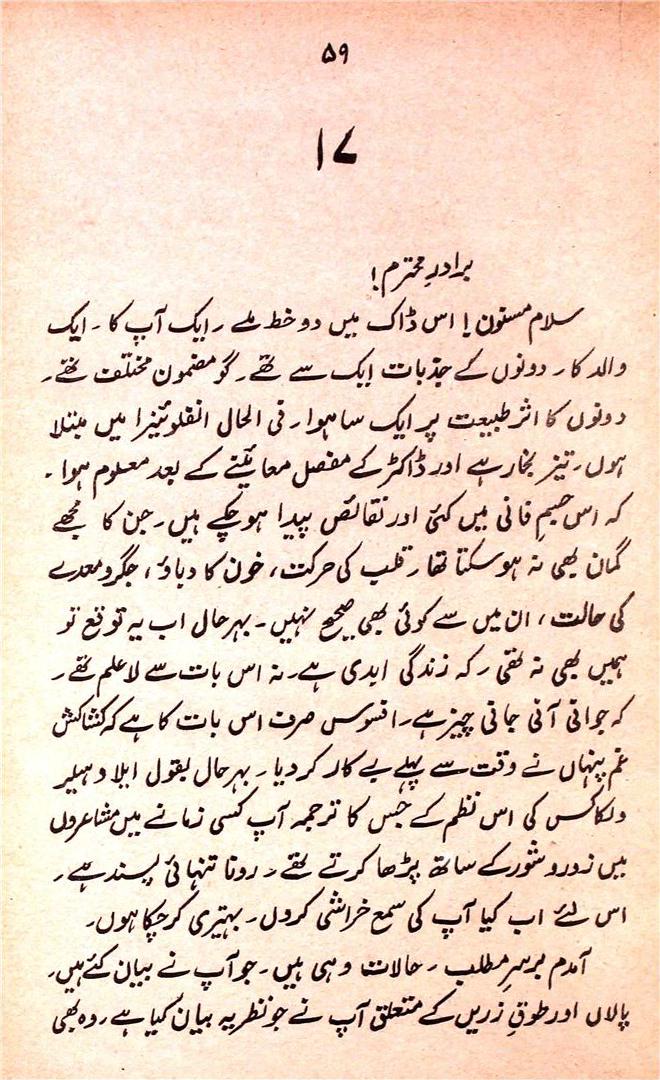 ۵۹
۱۷
برادرِ محترم!
سلام مسنون! اس ڈاک میں دو خط ملے۔ ایک آپ کا۔ ایک
والد کا۔ دونوں کے جذبات ایک سے تھے۔ گو مضمون مختلف تھے۔
دونوں کا اثر طبیعت پر ایک سا ہوا۔ فی الحال انفلوئنیزا میں مبتلا
ہوں۔ تیز بخار ہے اور ڈاکٹر کے مفصل معائنے کے بعد معلوم ہوا۔
کہ اس جسمِ فانی میں کئی اور نقائص پیدا ہو چکے ہیں۔ جن کا مجھے
گمان بھی نہ ہو سکتا تھا۔ قلب کی حرکت، خون کا دباؤ، جگر و معدے
کی حالت، ان میں سے کوئی بھی صحیح نہیں۔ بہرحال اب یہ توقع تو
ہمیں بھی نہ تھی۔ کہ زندگی ابدی ہے۔ نہ اس بات سے لاعلم تھے۔
کہ جوانی آنی جانی چیز ہے۔ افسوس صرف اس بات کا ہے کہ کشاکش
غم پنہاں نے وقت سے پہلے بے کار کر دیا۔ بہرحال بقول ایلا دہیلر
ولکاکس کی اس نظم کے جس کا ترجمہ آپ کسی زمانے میں مشاعروں
میں زور و شور کے ساتھ پڑھا کرتے تھے۔ رونا تنہائی پسند ہے۔
اس لئے اب کیا آپ کی سمع خراشی کروں۔ بہتیری کر چکا ہوں۔
آمدم برسرِ مطلب۔ حالات وہی ہیں۔ جو آپ نے بیان کئے ہیں۔
پالاں اور طوقِ زریں کے متعلق آپ نے جو نظریہ بیان کیا ہے۔ وہ بھی